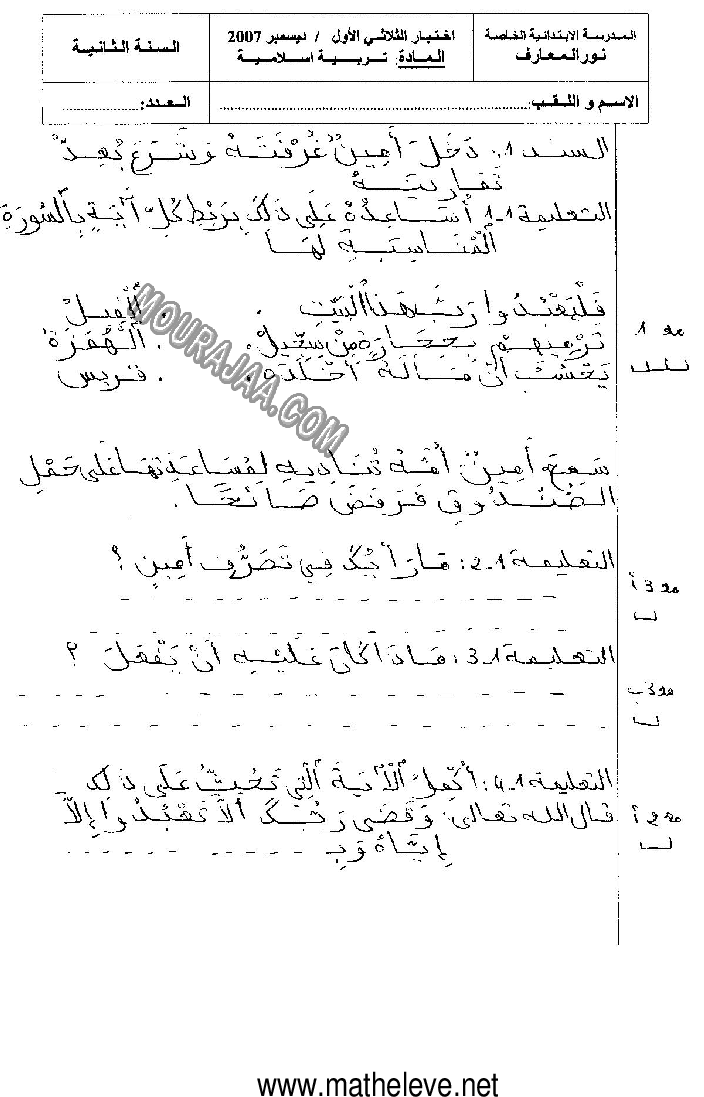 المدرسة الابتدائية الخاصة
نور المعارف
اختبار الثلاثي الأول / ديسمبر 2007
المادة: تربية اسلامية
السنة الثانية
الاسم و اللقب:
العدد:
السند 1: دَخَلَ أَمِينٌ غُرْفَتَهُ وَشَرَعَ يُعِدُّ
تَمَارِينَهُ
التعليمة 1-1 أُسَاعِدُهُ عَلَى ذَلِكَ بِرَبْطِ كُلِّ آيَةٍ بِالسُّورَةِ
الْمُنَاسِبَةِ لَهَا
فَلْيَعْبُدُوا رَبَّ هَذَا الْبَيْتِ . . الْفِيل
تَرْمِيهِمْ بِحِجَارَةٍ مِنْ سِجِّيلٍ . . الْهُمَزَة
يَحْسَبُ أَنَّ مَالَهُ أَخْلَدَهُ . . قريش
مع 1
سَمِعَ أَمِينٌ أُمَّهُ تُنَادِيهِ لِمُسَاعَدَتِهَا عَلَى حَمْلِ
الصُّنْدُوقِ فَرَفَضَ صَائِحًا.
التعليمة 1-2: مَا رَأْيُكَ فِي تَصَرُّفِ أَمِينٍ؟
مع 3 أ
التعليمة 1-3: مَاذَا كَانَ عَلَيْهِ أَنْ يَفْعَلَ ؟
مع 3 ب
التعليمة 1-4: أُكْمِلُ الْآيَةَ الَّتِي تَحُثُّ عَلَى ذَلِكَ
قال الله تعالى: وَقَضَى رَبُّكَ أَلَّا تَعْبُدُوا إِلَّا
إِيَّاهُ وَبِ
مع 2 أ
MOURAJAA.COM
www.matheleve.net